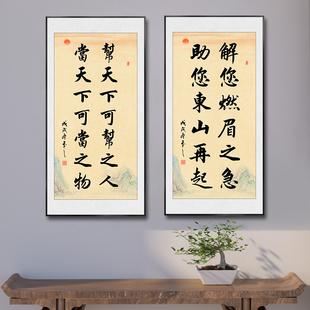 解您燃眉之急
助您東山再起
戊戌
幫天下可幫之人
當天下可當之物
戊戌